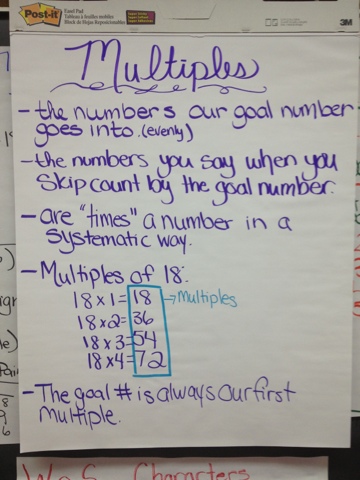 Post-it
Easel Pad
Tableau à feuilles mobiles
Block de Hojas Reposicionables
3M
Multiples
- the numbers our goal number
goes into. (evenly)
- the numbers you say when you
skip count by the goal number.
- are "times" a number in a
systematic way.
- Multiples of 18:
18 x 1 = 18 → Multiples
18 x 2 = 36
18 x 3 = 54
18 x 4 = 72
- The goal # is always our first
multiple.
Characters